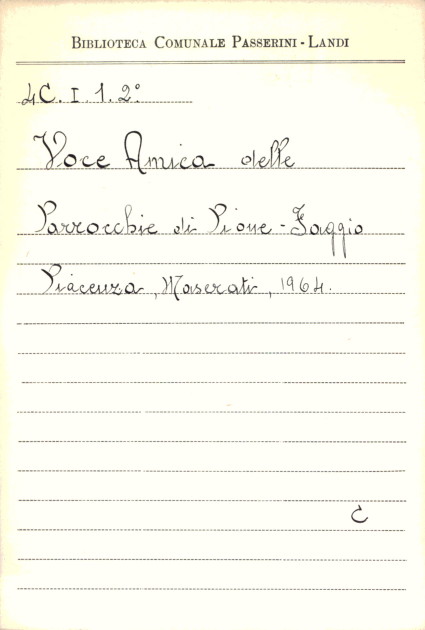 BIBLIOTECA COMUNALE PASSERINI-LANDI
4C. I. 1. 2°
Voce Amica delle
Parrocchie di Pione-Faggio
Piacenza, Maserati, 1964.
C